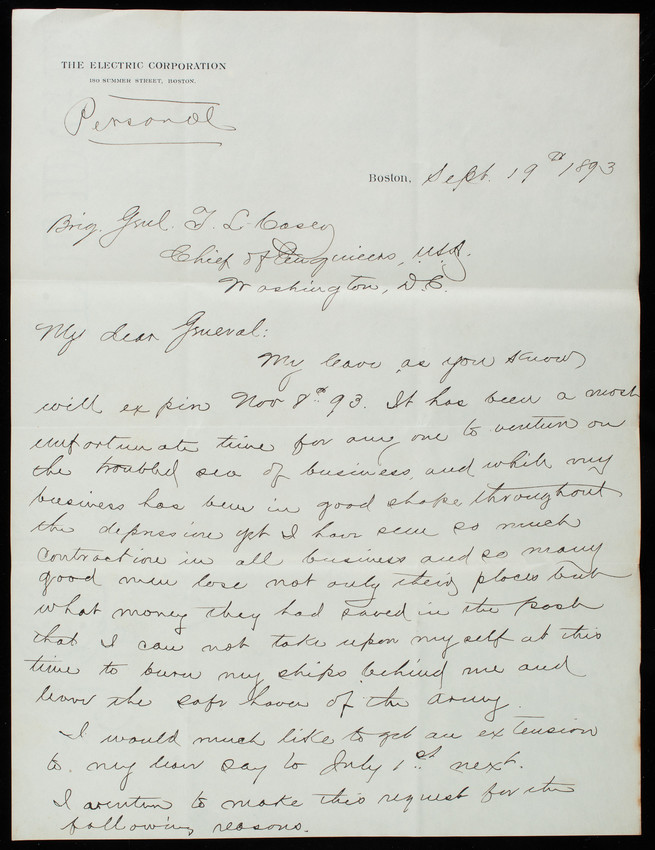 THE ELECTRIC CORPORATION
180 SUMMER STREET, BOSTON.
Personal
Boston, Sept. 19th 1893
Brig. Genl. T. L. Casey
Chief of Engineers, U.S.A.
Washington, D.C.
My dear General:
My leave, as you know
will expire Nov 8th 93. It has been a most
unfortunate time for any one to venture on
the troubled sea of business, and while my
business has been in good shape throughout
the depression yet I have seen so much
contraction in all business and so many
good men lose not only their places but
what money they had saved in the past
that I can not take upon myself at this
time to burn my ships behind me and
leave the safe haven of the army.
I would much like to get an extension
to my leave say to July 1st next.
I venture to make this request for the
following reasons.